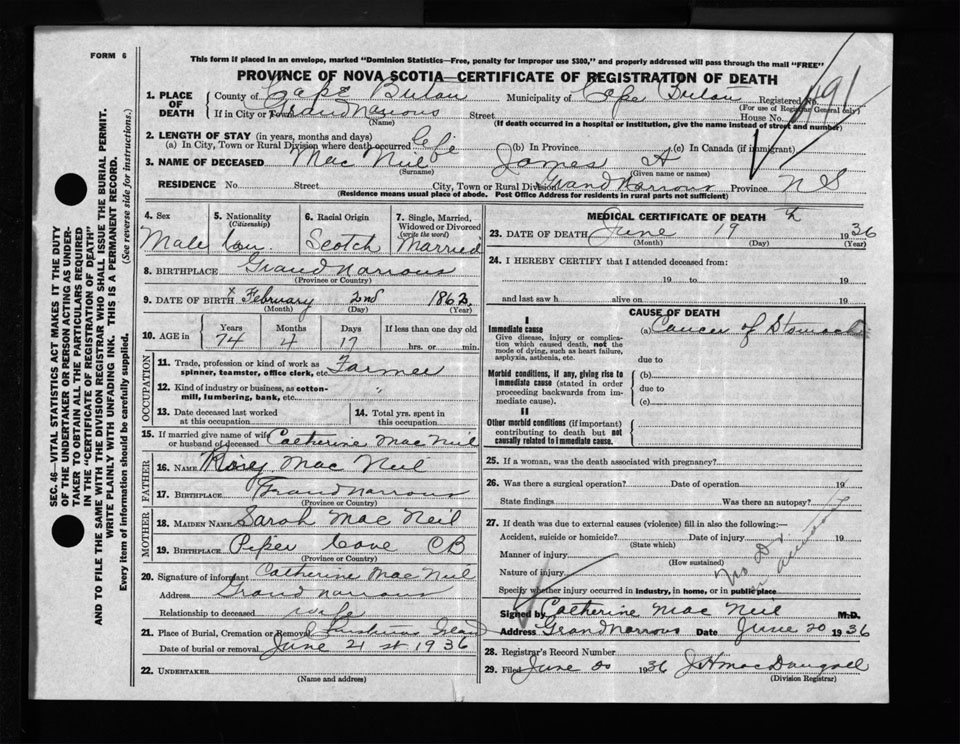 FORM 6
This form if placed in an envelope, marked "Dominion Statistics—Free, penalty for improper use $300," and properly addressed will pass through the mail "FREE"
PROVINCE OF NOVA SCOTIA—CERTIFICATE OF REGISTRATION OF DEATH
1. PLACE OF DEATH
County of Cape Breton Municipality of Cape Breton Registered No.
(For use of Registrar General only)
If in City or Town Grand Narrows Street House No.
(Name) (If death occurred in a hospital or institution, give the name instead of street and number)
2. LENGTH OF STAY (in years, months and days)
(a) In City, Town or Rural Division where death occurred Life (b) In Province (c) In Canada (if immigrant)
3. NAME OF DECEASED Mac Neil James A
(Surname) (Given name or names)
RESIDENCE No. Street City, Town or Rural Division Grand Narrows Province N S
(Residence means usual place of abode. Post Office Address for residents in rural parts not sufficient)
4. Sex Male
5. Nationality (Citizenship) Can.
6. Racial Origin Scotch
7. Single, Married, Widowed or Divorced (write the word) Married
8. BIRTHPLACE Grand Narrows
(Province or Country)
9. DATE OF BIRTH February 2nd 1862
(Month) (Day) (Year)
10. AGE in Years Months Days If less than one day old
74 4 17 hrs. or min.
OCCUPATION
11. Trade, profession or kind of work as spinner, teamster, office clerk, etc. Farmer
12. Kind of industry or business, as cotton-mill, lumbering, bank, etc. "
13. Date deceased last worked at this occupation
14. Total yrs. spent in this occupation
15. If married give name of wife or husband of deceased Catherine Mac Neil
FATHER
16. NAME Mac Neil
17. BIRTHPLACE Grand Narrows
(Province or Country)
MOTHER
18. MAIDEN NAME Sarah Mac Neil
19. BIRTHPLACE Piper Cove CB
(Province or Country)
20. Signature of informant Catherine Mac Neil
Address Grand Narrows
Relationship to deceased wife
21. Place of Burial, Cremation or Removal
Date of burial or removal June 21 st 1936
22. UNDERTAKER
(Name and address)
MEDICAL CERTIFICATE OF DEATH
23. DATE OF DEATH June 19 1936
(Month) (Day) (Year)
24. I HEREBY CERTIFY that I attended deceased from:
19 to 19
and last saw h alive on 19
CAUSE OF DEATH
I
Immediate cause
Give disease, injury or complication which caused death, not the mode of dying, such as heart failure, asphyxia, asthenia, etc.
(a) Cancer of Stomach
due to
Morbid conditions, if any, giving rise to immediate cause (stated in order proceeding backwards from immediate cause).
(b)
due to
(c)
II
Other morbid conditions (if important) contributing to death but not causally related to immediate cause.
25. If a woman, was the death associated with pregnancy?
26. Was there a surgical operation? Date of operation 19
State findings Was there an autopsy?
27. If death was due to external causes (violence) fill in also the following:
Accident, suicide or homicide? Date of injury 19
(State which)
Manner of injury
(How sustained)
Nature of injury
Specify whether injury occurred in industry, in home, or in public place
Signed by Catherine Mac Neil M.D.
Address Grand Narrows Date June 20 1936
28. Registrar's Record Number
29. Filed June 20 1936 J H MacDougall
(Division Registrar)
SEC. 46—VITAL STATISTICS ACT MAKES IT THE DUTY
OF THE UNDERTAKER OR PERSON ACTING AS UNDER-
TAKER TO OBTAIN ALL THE PARTICULARS REQUIRED
IN THE "CERTIFICATE OF REGISTRATION OF DEATH"
AND TO FILE THE SAME WITH THE DIVISION REGISTRAR WHO SHALL ISSUE THE BURIAL PERMIT.
WRITE PLAINLY WITH UNFADING INK. THIS IS A PERMANENT RECORD.
Every item of information should be carefully supplied. (See reverse side for instructions.)